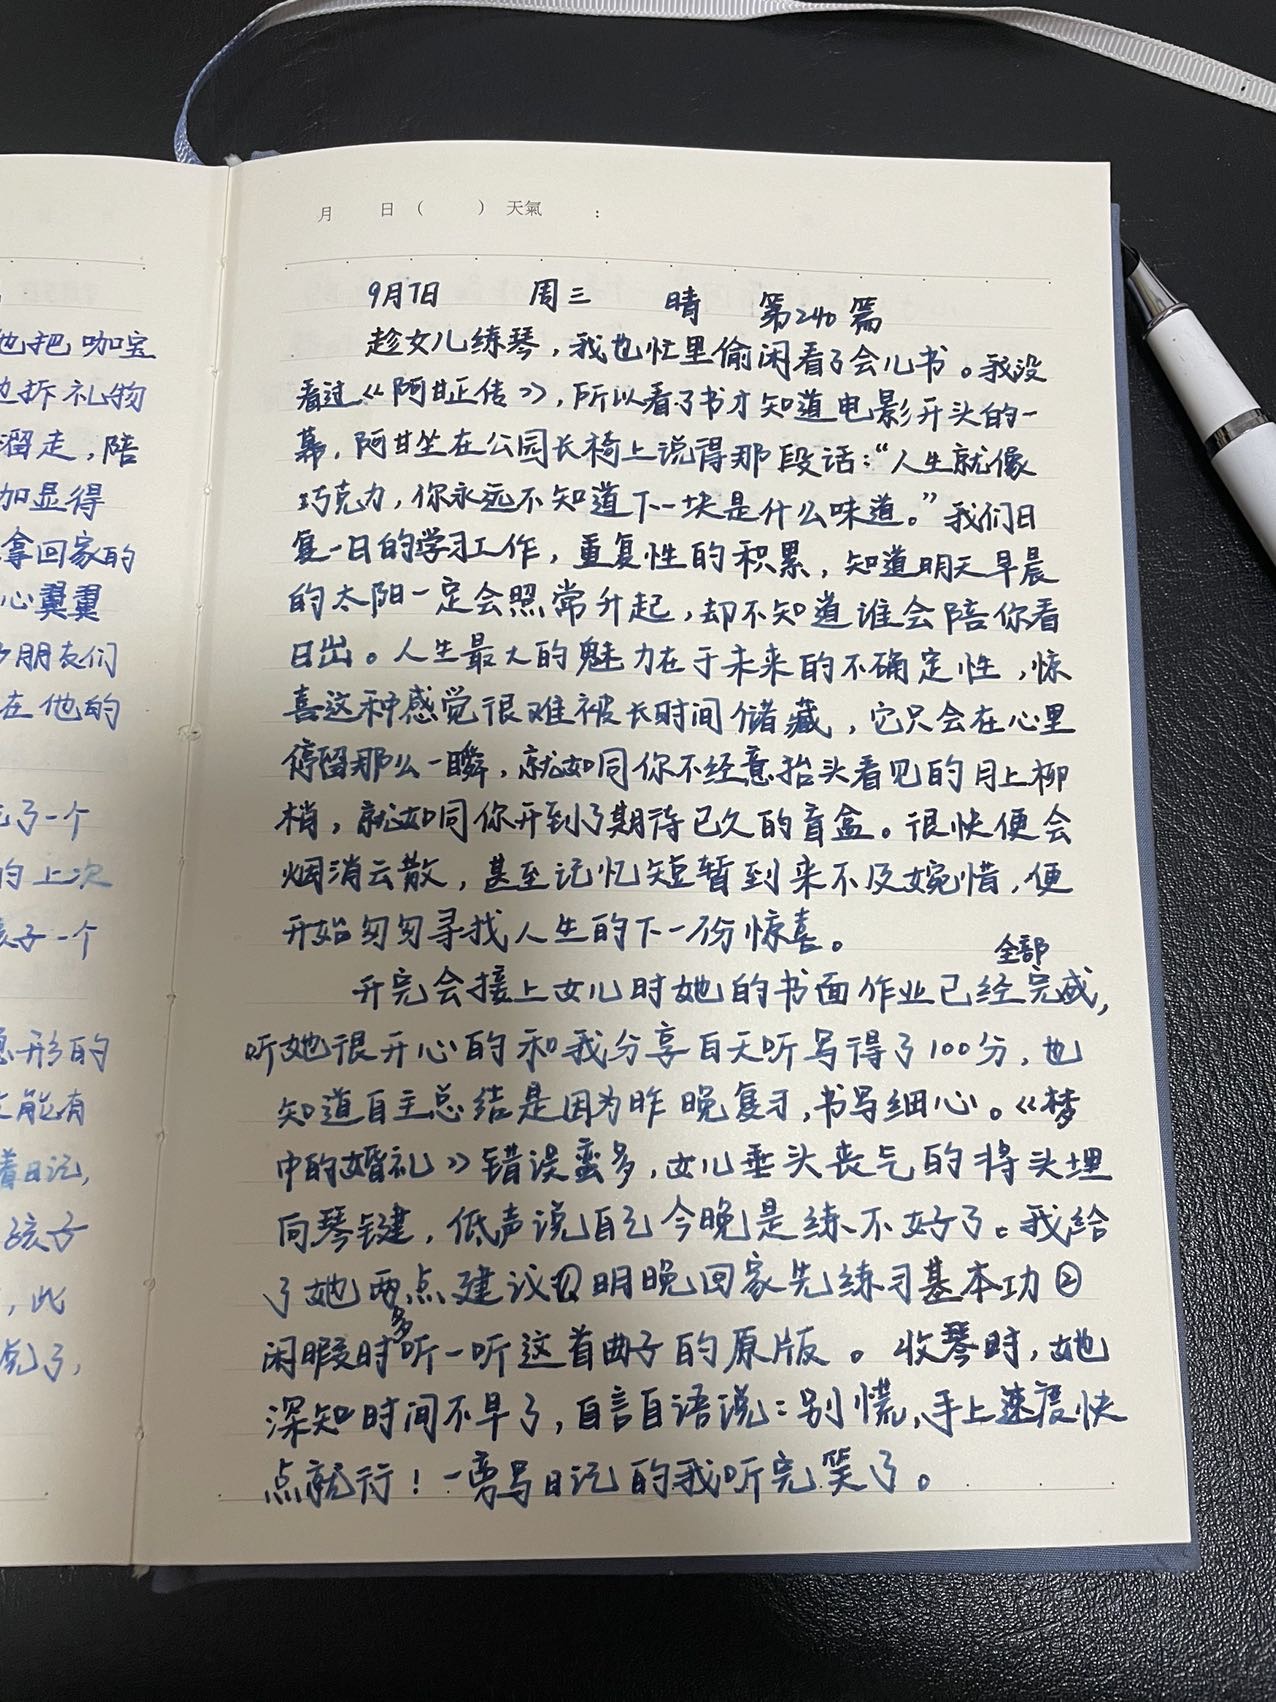 他把咖宝
拆礼物
溜走，陪
加显得
拿回家的
心翼翼
朋友们
在他的
了一个
的上次
孩子一个
形的
能有
着日记，
孩子
，此
了，
月 日（ ） 天氣 ：
9月7日 周三 晴 第240篇
趁女儿练琴，我也忙里偷闲看了会儿书。我没
看过《阿甘正传》，所以看了书才知道电影开头的一
幕，阿甘坐在公园长椅上说得那段话：“人生就像
巧克力，你永远不知道下一块是什么味道。”我们日
复一日的学习工作，重复性的积累，知道明天早晨
的太阳一定会照常升起，却不知道谁会陪你看
日出。人生最大的魅力在于未来的不确定性，惊
喜这种感觉很难被长时间储藏，它只会在心里
停留那么一瞬，就如同你不经意抬头看见的月上柳
梢，就如同你开到了期待已久的盲盒。很快便会
烟消云散，甚至记忆短暂到来不及婉惜，便
开始匆匆寻找人生的下一份惊喜。
开完会接上女儿时她的书面作业已经全部完成，
听她很开心的和我分享白天听写得了100分，也
知道自主总结是因为昨晚复习，书写细心。《梦
中的婚礼》错误蛮多，女儿垂头丧气的将头埋
向琴键，低声说自己今晚是练不好了。我给
了她两点建议①明晚回家先练习基本功②
闲暇时多听一听这首曲子的原版。收琴时，她
深知时间不早了，自言自语说：别慌，手上速度快
点就行！一旁写日记的我听完笑了。